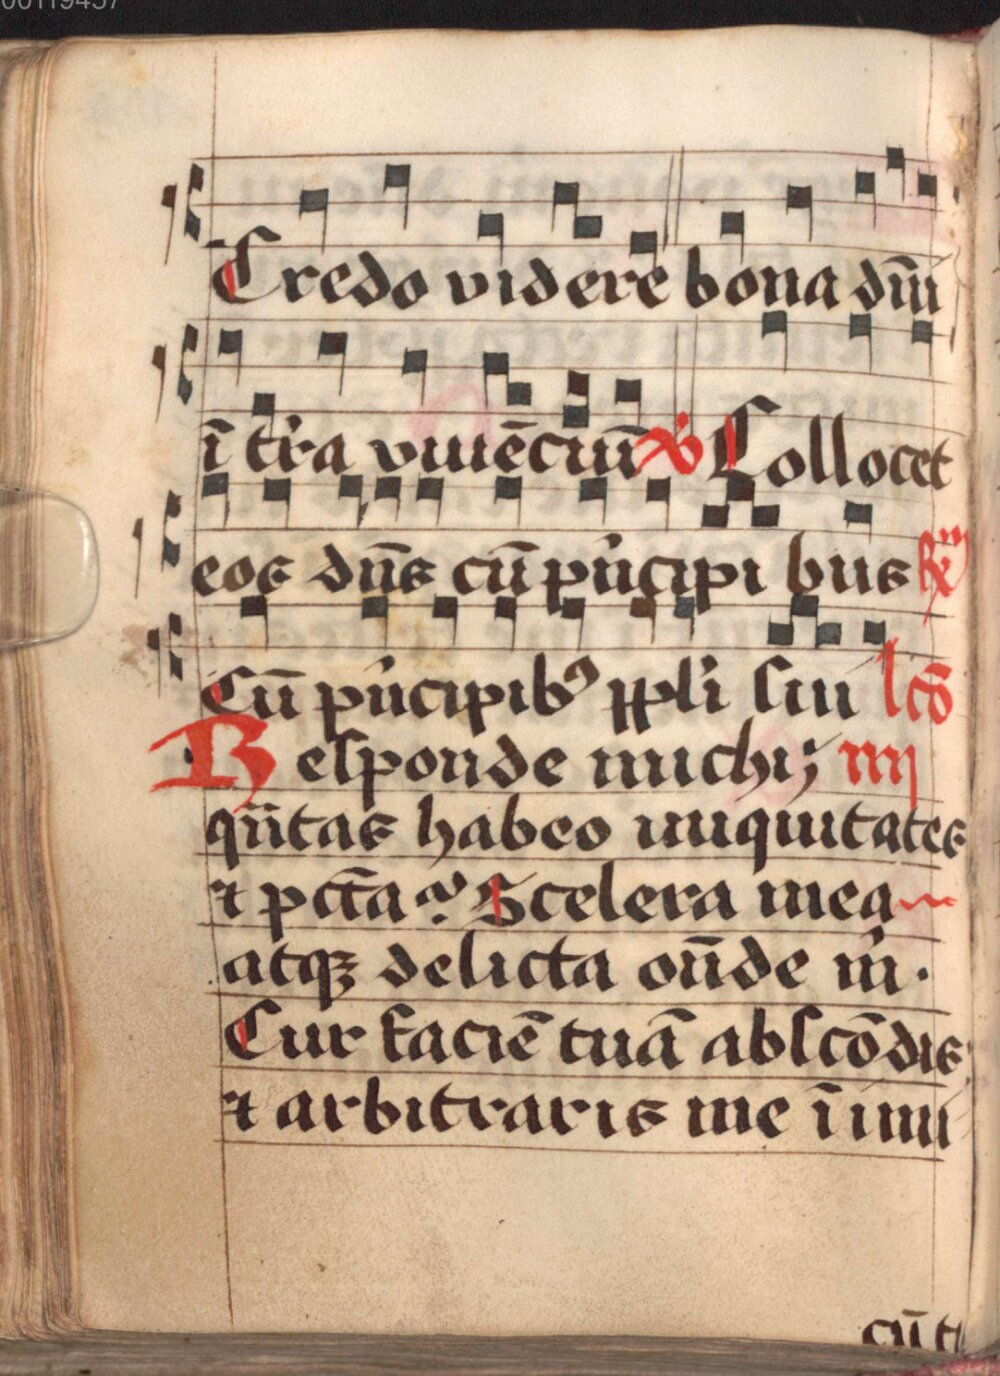 00119457
Credo videre bona dn̄i
ī tr̄a viuēciū ℣ Collocet
eos dn̄s cū pͥncipi bus ℟
Cū pͥncipibꝰ ppl̄i sui lcō
Responde michi; iiij
qn̄tas habeo iniquitates
⁊ pctā a? Scelera mea
atqꝫ delicta on̄de mͥ.
Cur faciē tuā abscōdis
⁊ arbitraris me īimi
cū t